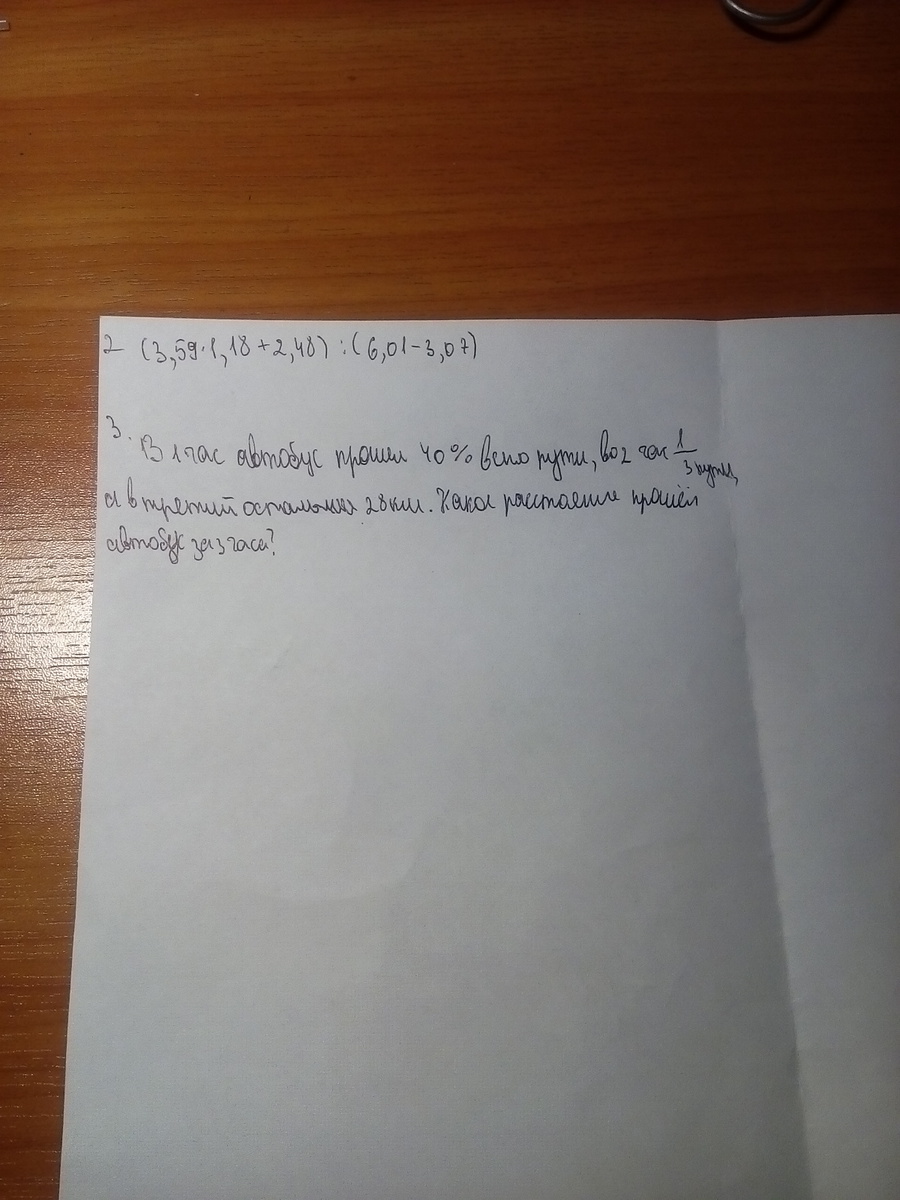 2 (3,59·1,18+2,48) : (6,01-3,07)
3. В 1 час автобус прошел 40% всего пути, во 2 час 1/3 пути,
а в третий остальные 28 км. Какое расстояние прошёл
автобус за 3 часа?